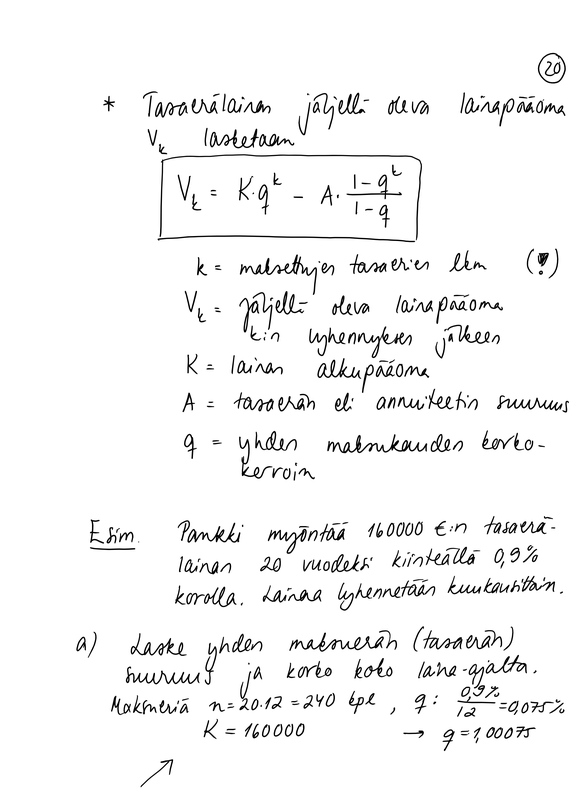 20
* Tasaerälainan jäljellä oleva lainapääoma
V_k lasketaan
V_k = K·q^k − A· (1−q^k)/(1−q)
k = maksettujen tasaerien lkm (!)
V_k = jäljellä oleva lainapääoma
k:n lyhennyksen jälkeen
K = lainan alkupääoma
A = tasaerän eli annuiteetin suuruus
q = yhden maksukauden korko-
kerroin
Esim. Pankki myöntää 160000 €:n tasaerä-
lainan 20 vuodeksi kiinteällä 0,9%
korolla. Lainaa lyhennetään kuukausittain.
a) Laske yhden maksuerän (tasaerän)
suuruus ja korko koko laina-ajalta.
Maksueriä n = 20·12 = 240 kpl, q: 0,9%/12 = 0,075%
K = 160000 → q = 1,00075